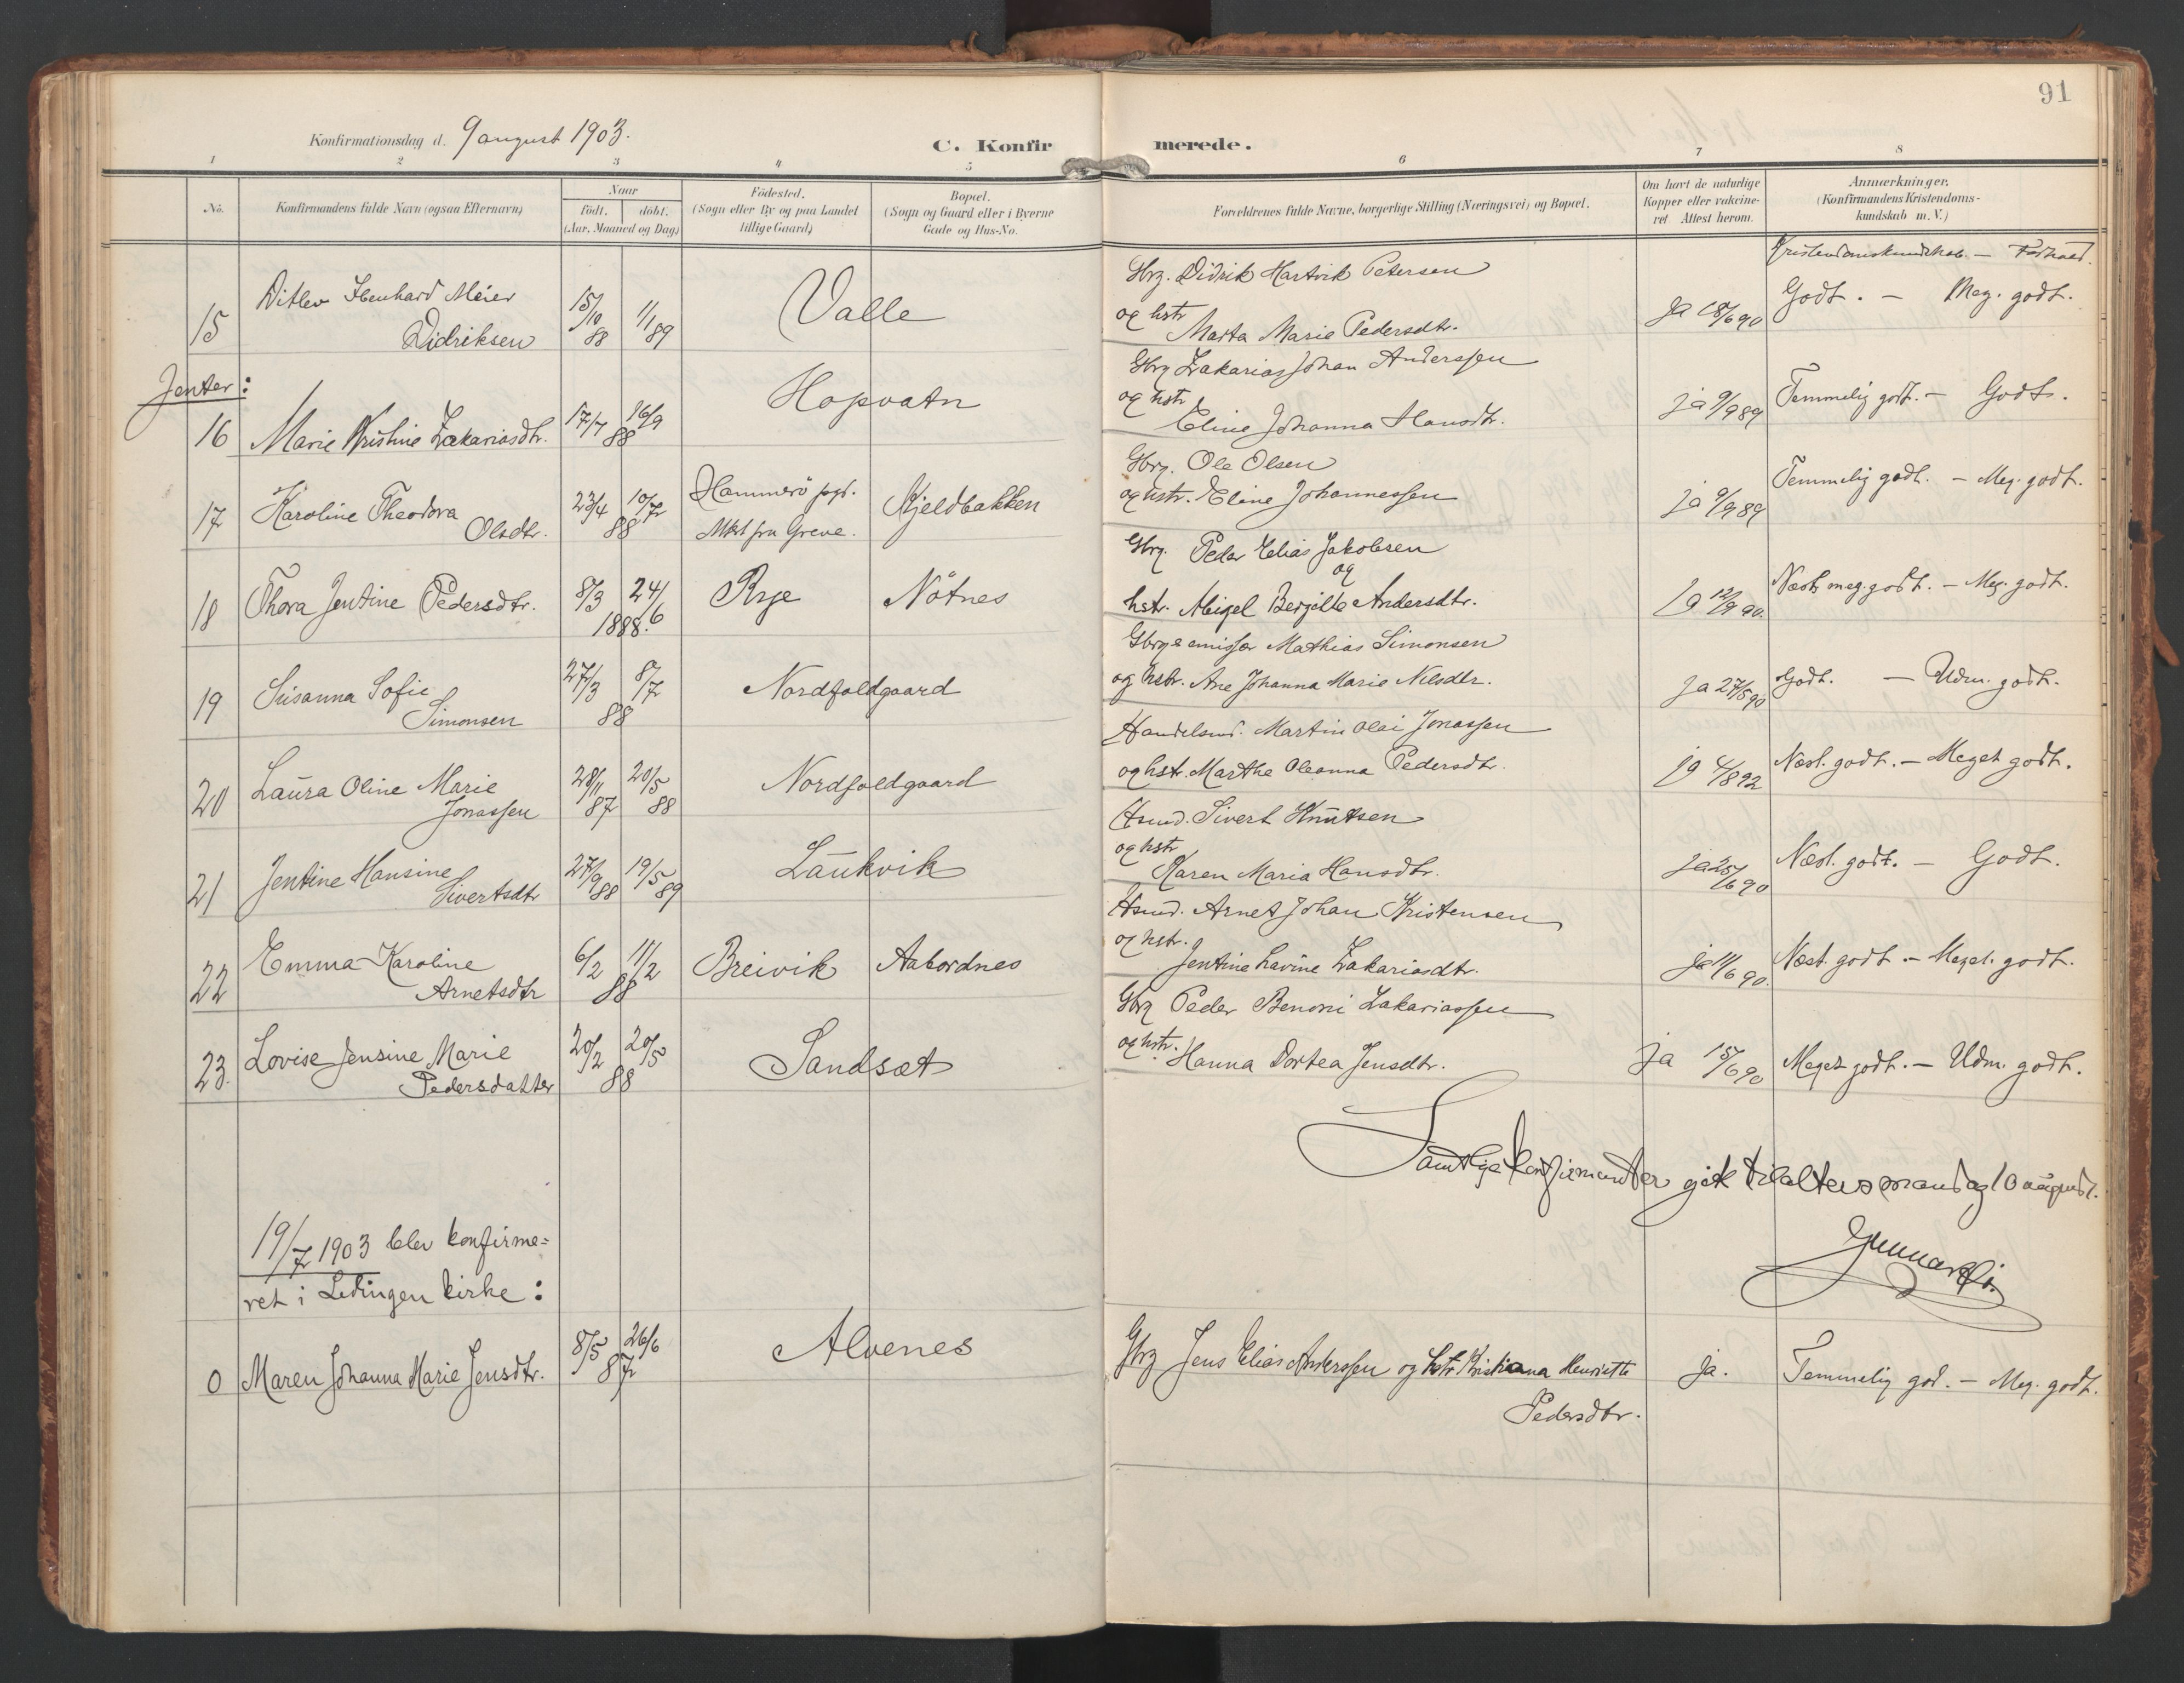 91
Konfirmationsdag d. 9 august 1903.
C. Konfirmerede.
1 2 3 4 5 6 7 8
No.
Konfirmandens fulde Navn (ogsaa Efternavn)
Naar
født. døbt.
(Aar, Maaned og Dag)
Födested.
(Sogn eller By og paa Landet
tillige Gaard)
Bopæl.
(Sogn og Gaard eller i Byerne
Gade og Hus-No.
Forældrenes fulde Navne, borgerlige Stilling (Næringsvei) og Bopæl.
Om havt de naturlige
Kopper eller vaccine-
ret Attest herom.
Anmærkninger.
(Konfirmandens Kristendoms-
kundskab m. V.)
Kristendomskundskab. — Forhold.
15 Ditlev Meier
Didriksen
15/10 88 1/1 89
Valle
Gbrg. Didrik Hartvik Petersen
og hstr
Marta Marie Pedersdtr.
ja 18/6 90
Godt. — Meg. godt.
Jenter:
16 Marie Kristine Zakariasdtr.
17/7 16/9
88
Hopvatn
Gbrg Zakarias Johan Anderssen
og hstr
Eline Johanna Hansdtr.
ja 9/9 89
Temmelig godt. — Godt.
17 Karoline Theodora
Olsdtr.
23/4 10/7
88
Hammerö pgd.
Mkt fra Greve.
Kjeldbakken
Gbrg. Ole Olsen
og hstr. Eline Johannessen
ja 9/9 89
Temmelig godt. — Meg. godt.
18 Thora Jentine Pedersdtr.
8/3 24/6
1888.
Rye
Nötnes
Gbrg. Peder Elias Jakobsen
og
hstr. Abigel Bergitte Andersdtr.
ja 12/9 90.
Næst meg. godt. — Meg. godt.
19 Susanna Sofie
Simonsen
27/3 8/7
88
Nordfoldgaard
Gbrg & emissær Mathias Simonsen
og hstr. Ane Johanna Marie Nilsdtr.
ja 27/5 90
Godt. — Udm. godt.
20 Laura Oline Marie
Jonassen
28/11 87 20/5 88
Nordfoldgaard
Handelsmd. Martin Olai Jonassen
og hstr. Marthe Oleanna Pedersdtr.
ja 4/8 92
Næst. godt. — Meget godt.
21 Jentine Hansine
Sivertsdtr
27/9 88 19/5 89
Laukvik
Hsmd. Sivert Knutsen
og hstr
Karen Maria Hansdtr.
ja 25/6 90
Næst. godt. — Godt.
22 Emma Karoline
Arnetsdtr
6/2 11/2
88
Breivik
Aabordnes
Hsmd. Arnet Johan Kristensen
og hstr.
Jentine Lavine Zakariasdtr.
ja 11/6 90.
Næst. godt — Meget. godt.
23. Lovise Jensine Marie
Pedersdatter
20/2 20/5
88
Sandsæt
Gbrg Peder Benoni Zakariassen
og hstr.
Hanna Dortea Jensdtr.
ja 15/6 90
Meget godt. — Udm. godt.
Samtlige konfirmanter gik tilalters mandag 10 august.
19/7 1903 blev konfirme=
ret i Lödingen kirke:
0 Maren Johanna Marie Jensdtr.
8/5 26/6
87
Alvenes
Gbrg Jens Elias Anderssen og hstr Kristiana Henriette
Pedersdtr.
ja.
Temmelig god. — Meg. godt.